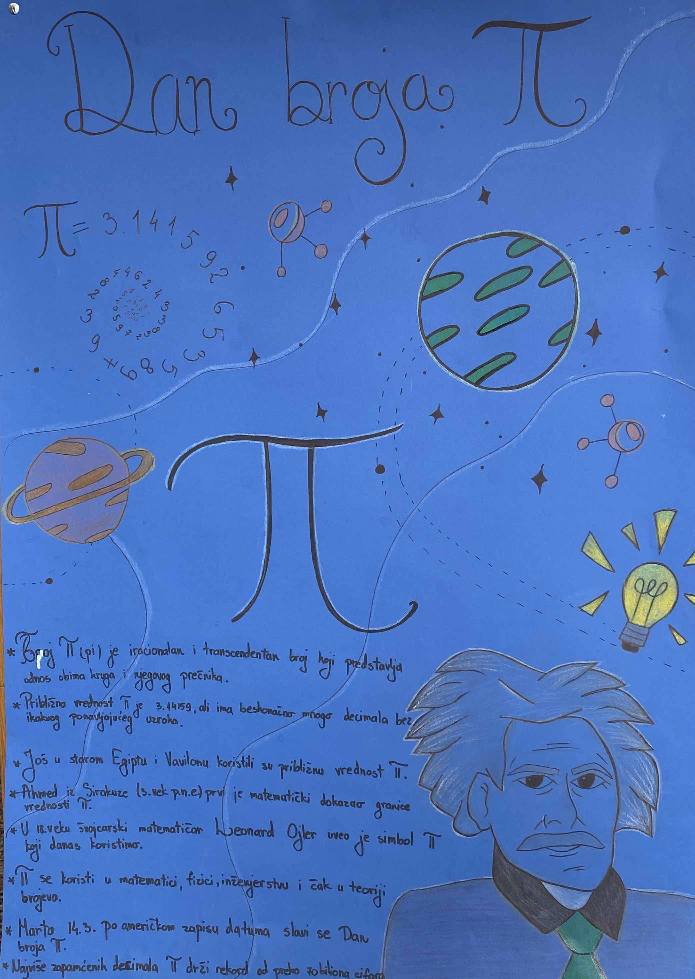 Dan broja π
π = 3.1415926535897932384626433832795
π
* Broj π (pi) je iracionalan i transcendentan broj koji predstavlja
odnos obima kruga i njegovog prečnika.
* Približna vrednost π je 3.14159, ali ima beskonačno mnogo decimala bez
ikakvog ponavljajućeg uzroka.
* Još u starom Egiptu i Vavilonu koristili su približnu vrednost π.
* Ahmed iz Sirakuze (3.vek p.n.e) prvi je matematički dokazao granice
vrednosti π.
* U 18.veku švajcarski matematičar Leonard Ojler uveo je simbol π
koji danas koristimo.
* π se koristi u matematici, fizici, inženjerstvu i čak u teoriji
brojeva.
* Marta 14.3. po američkom zapisu datuma slavi se Dan
broja π.
* Najviše zapamćenih decimala π drži rekord od preko 70 biliona cifara